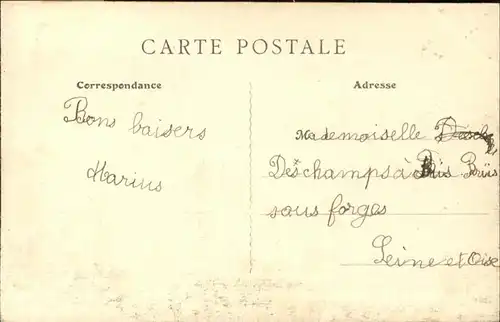 CARTE POSTALE
Correspondance
Adresse
Bons baisers
Marius
Mademoiselle
Deschamps à Briis
sous forges
Seine et Oise